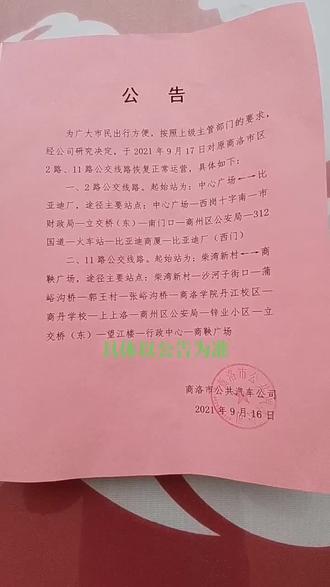 公告
为广大市民出行方便，按照上级主管部门的要求，
经公司研究决定，于2021年9月17日对原商洛市区
2路、11路公交线路恢复正常运营，具体如下：
一、2路公交线路，起始站为：中心广场←→比
亚迪厂，途径主要站点：中心广场—西岗十字南—市
财政局—立交桥（东）—南门口—商州区公安局—312
国道—火车站—比亚迪商厦—比亚迪厂（西门）
二、11路公交线路。起始站为：柴湾新村←→商
鞅广场，途径主要站点：柴湾新村—沙河子街口—蒲
峪沟桥—郭王村—张峪沟桥—商洛学院丹江校区—
商丹学校—上上洛—商州区公安局—锌业小区—立
交桥（东）—望江楼—行政中心—商鞅广场
具体以公告为准
商洛市公共汽车公司
2021年9月16日